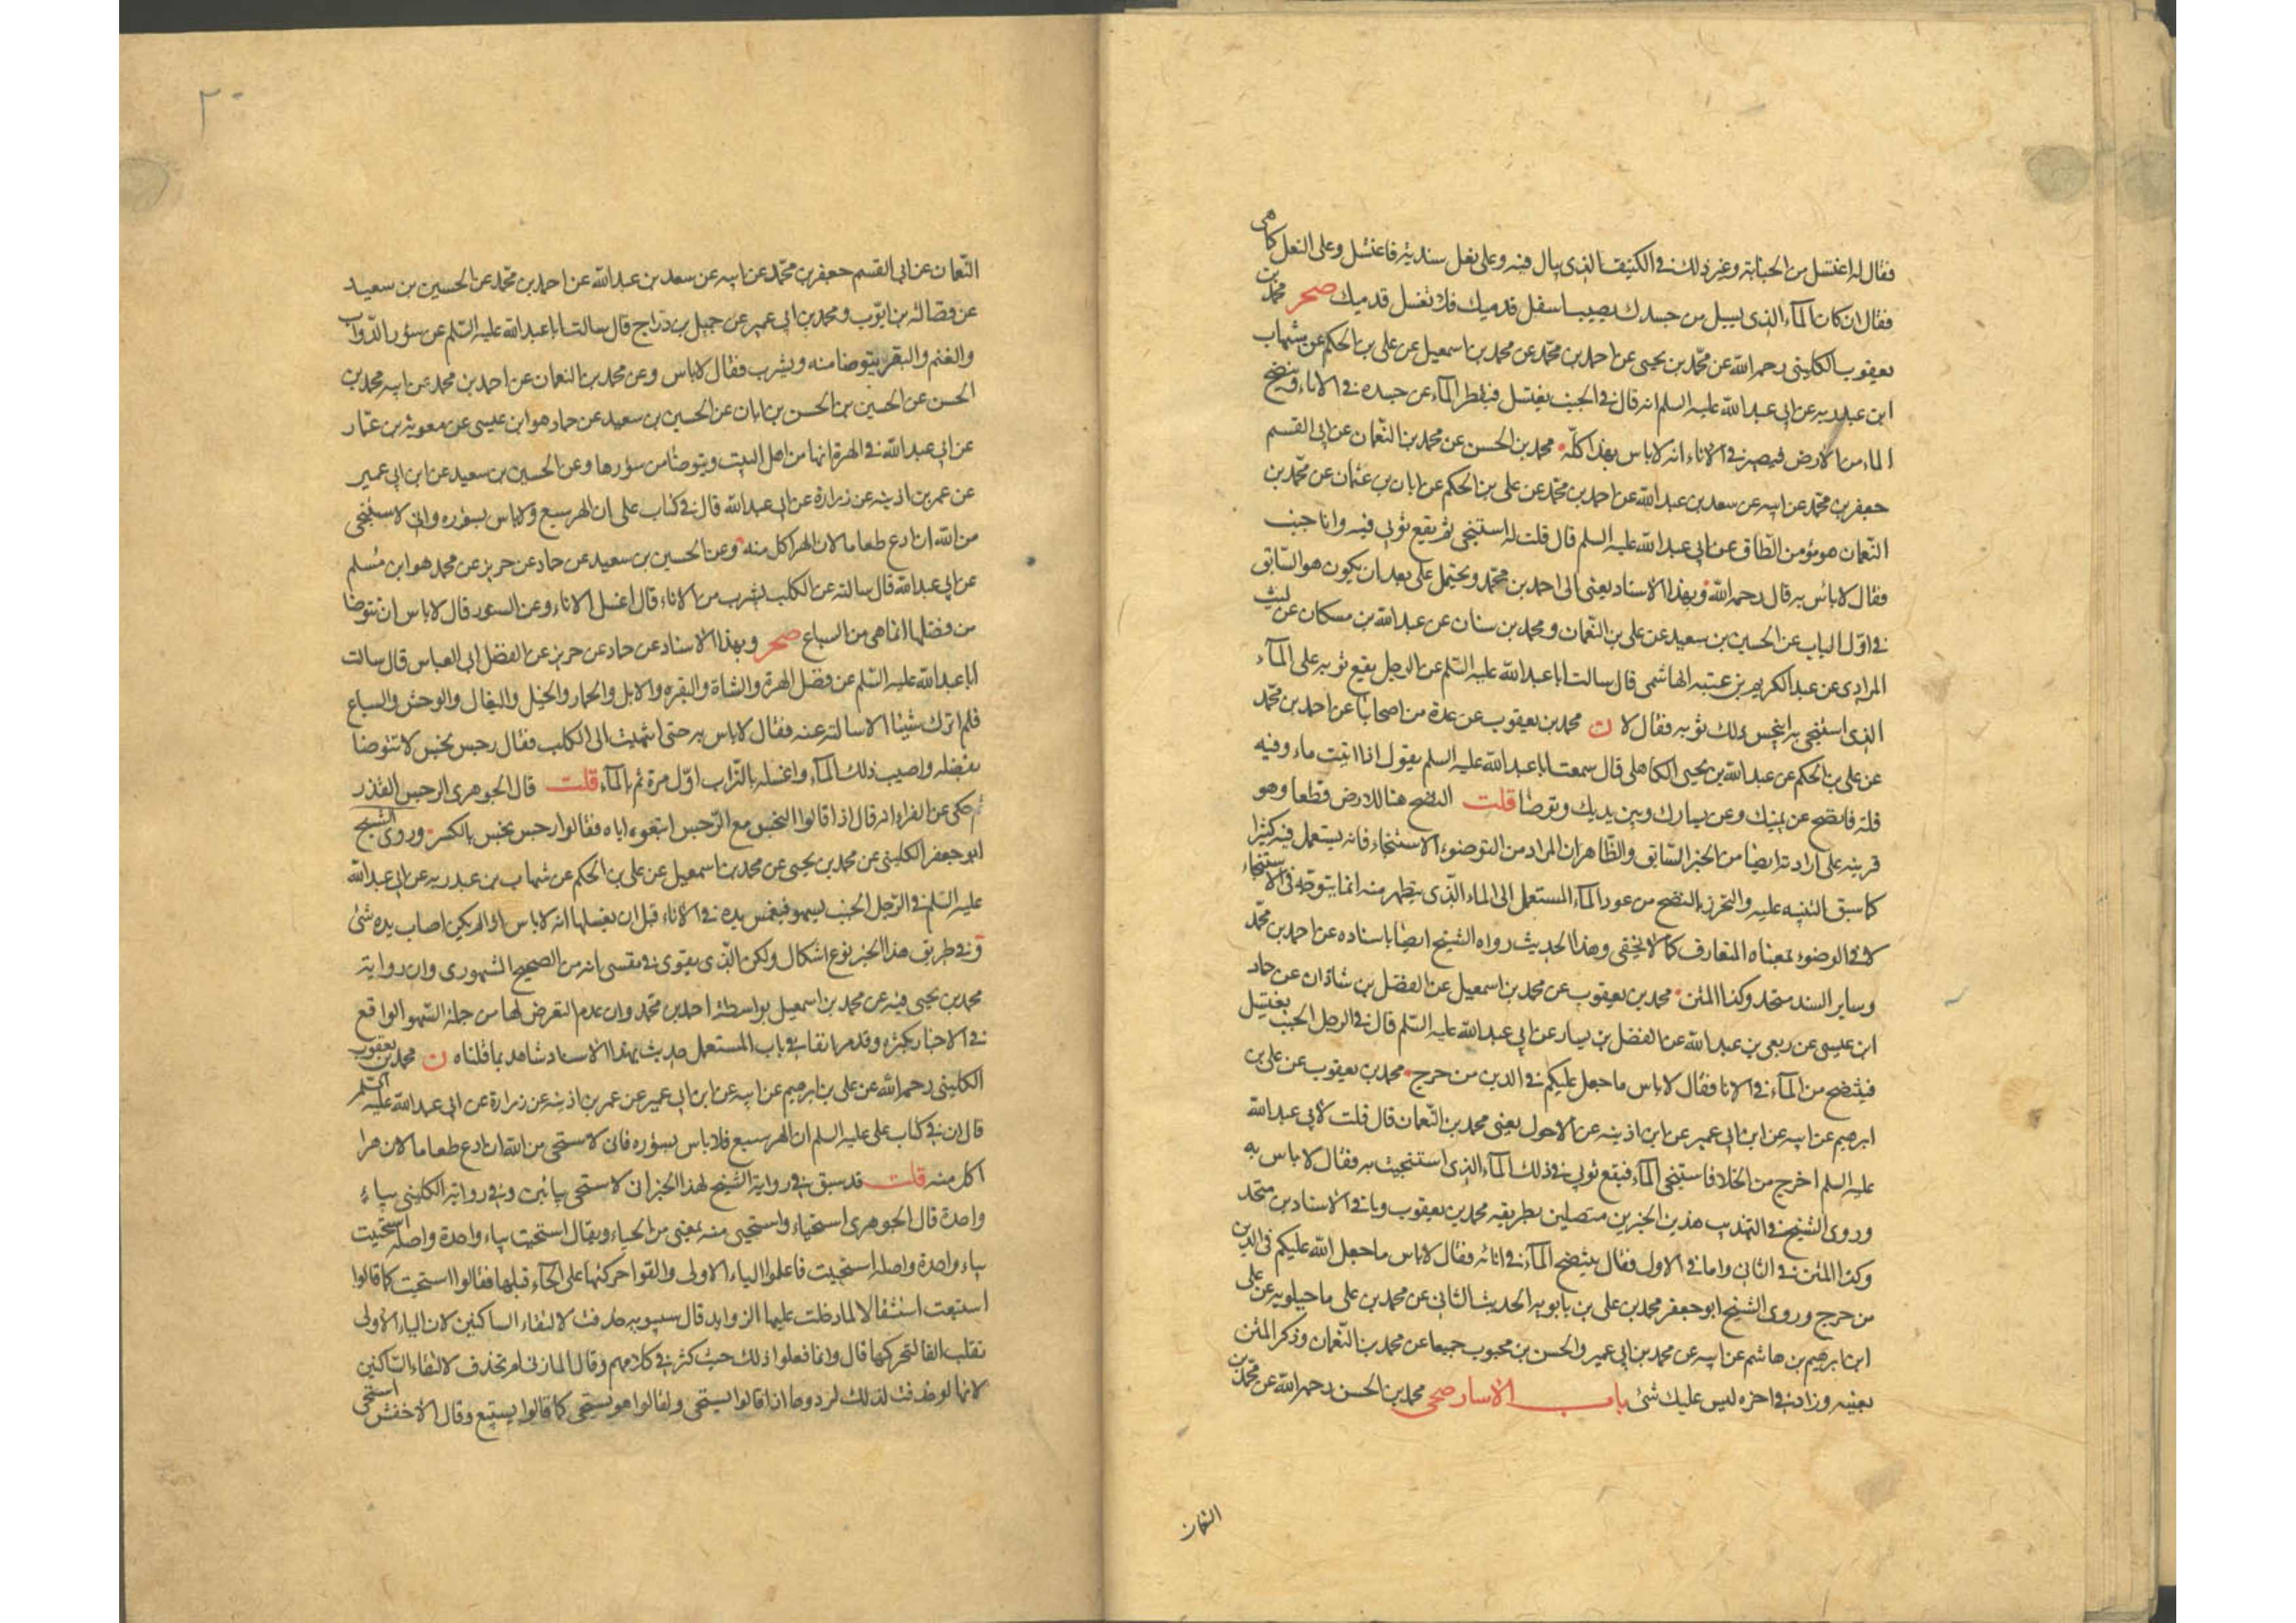 فقال له اغتسل من الجنابة وغير ذلك في الكنيف الذي يبال فيه وعلى نعل سندية فاغتسل وعلى النعل كما هي
فقال ان كان الماء الذي يسيل من جسدك يصيب اسفل قدميك فلا تغسل قدميك صحر محمد بن
يعقوب الكليني رحمه الله عن محمد بن يحيى عن احمد بن محمد عن محمد بن اسمعيل عن علي بن الحكم عن شهاب
ابن عبد ربه عن ابي عبد الله عليه السلم انه قال في الجنب يغتسل فيقطر الماء عن جسده في الاناء وينضح
الماء من الارض فيصير في الاناء انه لا باس بهذا كله محمد بن الحسن عن محمد بن النعمان عن ابي القسم
جعفر بن محمد عن ابيه عن سعد بن عبد الله عن احمد بن محمد عن علي بن الحكم عن ابان بن عثمان عن محمد بن
النعمان هو مؤمن الطاق عن ابي عبد الله عليه السلم قال قلت له استنجي ثم يقع ثوبي فيه وانا جنب
فقال لا باس به قال رحمه الله وبهذا الاسناد يعني الى احمد بن محمد ويحتمل على بعد ان يكون هو السابق
في اول الباب عن الحسين بن سعيد عن علي بن النعمان ومحمد بن سنان عن عبد الله بن مسكان عن ليث
المرادي عن عبد الكريم بن عتبة الهاشمي قال سالت ابا عبد الله عليه السلم عن الرجل يقع ثوبه على الماء
الذي استنجى به اينجس ذلك ثوبه فقال لا ن محمد بن يعقوب عن عدة من اصحابنا عن احمد بن محمد
عن علي بن الحكم عن عبد الله بن يحيى الكاهلي قال سمعت ابا عبد الله عليه السلم يقول اذا اتيت ماء وفيه
قلة فانضح عن يمينك وعن يسارك وبين يديك وتوضا قلت النضح هنا للارض قطعا وهو
قرينة على ارادته ايضا من الخبر السابق والظاهر ان المراد من التوضوء الاستنجاء فانه يستعمل فيه كثيرا
كما سبق التنبيه عليه والتحرز بالنضح من عود الماء المستعمل الى الماء الذي يتطهر منه انما يتوجه في الاستنجاء
لا في الوضوء بمعناه المتعارف كما لا يخفى وهذا الحديث رواه الشيخ ايضا باسناده عن احمد بن محمد
وساير السند متحد وكذا المتن محمد بن يعقوب عن محمد بن اسمعيل عن الفضل بن شاذان عن حماد
ابن عيسى عن ربعي بن عبد الله عن الفضل بن يسار عن ابي عبد الله عليه السلم قال في الرجل الجنب يغتسل
فينتضح من الماء في الانا فقال لا باس ما جعل عليكم في الدين من حرج محمد بن يعقوب عن علي بن
ابرهيم عن ابيه عن ابن ابي عمير عن ابن اذينه عن الاحول يعني محمد بن النعمان قال قلت لابي عبد الله
عليه السلم اخرج من الخلا فاستنجي الماء فيقع ثوبي في ذلك الماء الذي استنجيت به فقال لا باس به
وروى الشيخ في التهذيب هذين الخبرين متصلين بطريقه محمد بن يعقوب وباقي الاسنادين متحد
وكذا المتن في الثاني واما في الاول فقال ينتضح الماء في انائه فقال لا باس ما جعل الله عليكم في الدين
من حرج وروى الشيخ ابو جعفر محمد بن علي بن بابويه الحديث الثاني عن محمد بن علي ماجيلويه عن علي
ابن ابرهيم بن هاشم عن ابيه عن محمد بن ابي عمير والحسن بن محبوب جميعا عن محمد بن النعمان وذكر المتن
بعينه وزاد في اخره ليس عليك شئ باب الاسار صحي محمد بن الحسن رحمه الله عن محمد بن
النعمان
٢٠
النعمان عن ابي القسم جعفر بن محمد عن ابيه عن سعد بن عبد الله عن احمد بن محمد عن الحسين بن سعيد
عن فضالة بن ايوب ومحمد بن ابي عمير عن جميل بن دراج قال سالت ابا عبد الله عليه السلم عن سؤر الدواب
والغنم والبقر يتوضا منه ويشرب فقال لا باس وعن محمد بن النعمان عن احمد بن محمد عن ابيه محمد بن
الحسن عن الحسين بن الحسن بن ابان عن الحسين بن سعيد عن حماد هو ابن عيسى عن معوية بن عمار
عن ابي عبد الله في الهرة انها من اهل البيت ويتوضا من سؤرها وعن الحسين بن سعيد عن ابن ابي عمير
عن عمر بن اذينه عن زرارة عن ابي عبد الله قال في كتاب علي ان الهر سبع ولا باس بسؤره واني لاستحيي
من الله ان ادع طعاما لان الهر اكل منه وعن الحسين بن سعيد عن حماد عن حريز عن محمد هو ابن مسلم
عن ابي عبد الله قال سالته عن الكلب يشرب من الاناء قال اغسل الاناء وعن السنور قال لا باس ان تتوضا
من فضلها انما هي من السباع صحر وبهذا الاسناد عن حماد عن حريز عن الفضل ابي العباس قال سالت
ابا عبد الله عليه السلم عن فضل الهرة والشاة والبقره والابل والحمار والخيل والبغال والوحش والسباع
فلم اترك شيئا الا سالته عنه فقال لا باس به حتى انتهيت الى الكلب فقال رجس نجس لا تتوضا
بفضله واصبب ذلك الماء واغسله بالتراب اول مرة ثم بالماء قلت قال الجوهري الرجس القذر
ثم حكى عن الفراء انه قال اذا قالوا النجس مع الرجس اتبعوه اياه فقالوا رجس نجس بالكسر وروى الشيخ
ابو جعفر الكليني عن محمد بن يحيى عن محمد بن اسمعيل عن علي بن الحكم عن شهاب بن عبد ربه عن ابي عبد الله
عليه السلم في الرجل الجنب يسهو فيغمس يده في الاناء قبل ان يغسلها انه لا باس اذا لم يكن اصاب يده شئ
وفي طريق هذا الخبر نوع اشكال ولكن الذي يقوى في نفسي انه من الصحيح المشهوري وان رواية
محمد بن يحيى فيه عن محمد بن اسمعيل بواسطة احمد بن محمد وان عدم التعرض لها من جملة السهو الواقع
في الاخبار بكثره وقد مر انفا في باب المستعمل حديث بهذا الاسناد شاهد بما قلناه ن محمد بن يعقوب
الكليني رحمه الله عن علي بن ابرهيم عن ابيه عن ابن ابي عمير عن عمر بن اذينه عن زرارة عن ابي عبد الله عليه السلم
قال ان في كتاب علي عليه السلم ان الهر سبع فلا باس بسؤره فاني لاستحي من الله ان ادع طعاما لان هرا
اكل منه قلت قد سبق في رواية الشيخ لهذا الخبر اني لاستحيي بيائين وفي رواية الكليني بياء
واحدة قال الجوهري استحياه واستحيى منه بمعنى من الحياء ويقال استحيت بياء واحدة واصله استحييت
بياء واحدة واصله استحييت فاعلوا الياء الاولى والقوا حركتها على الحاء قبلها فقالوا استحيت كما قالوا
استبعت استثقالا لما دخلت عليها الزوايد قال سيبويه حذفت لالتقاء الساكنين لان الياء الاولى
تقلب الفا لتحركها قال وانما فعلوا ذلك حيث كثر في كلامهم وقال المازني لم تحذف لالتقاء الساكنين
لانها لو حذفت لذلك لردوها اذا قالوا يستحي ولقالوا هو يستحي كما قالوا يستبيع وقال الاخفش استحى